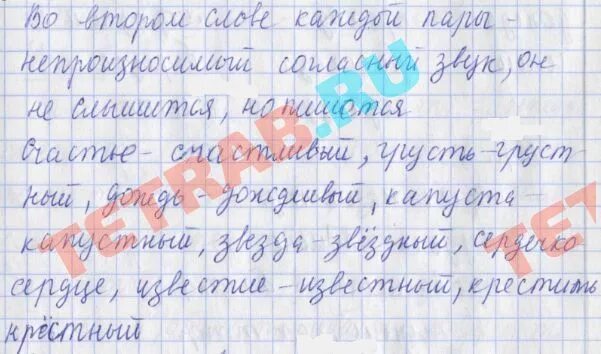 Во втором слове каждой пары -
непроизносимый согласный звук, он
не слышится, но пишется
Счастье - счастливый, грусть - груст
ный, дождь - дождливый, капуста -
капустный, звезда - звёздный, сердечко
сердце, известие - известный, крестить
крёстный
TETRAB.RU
TET